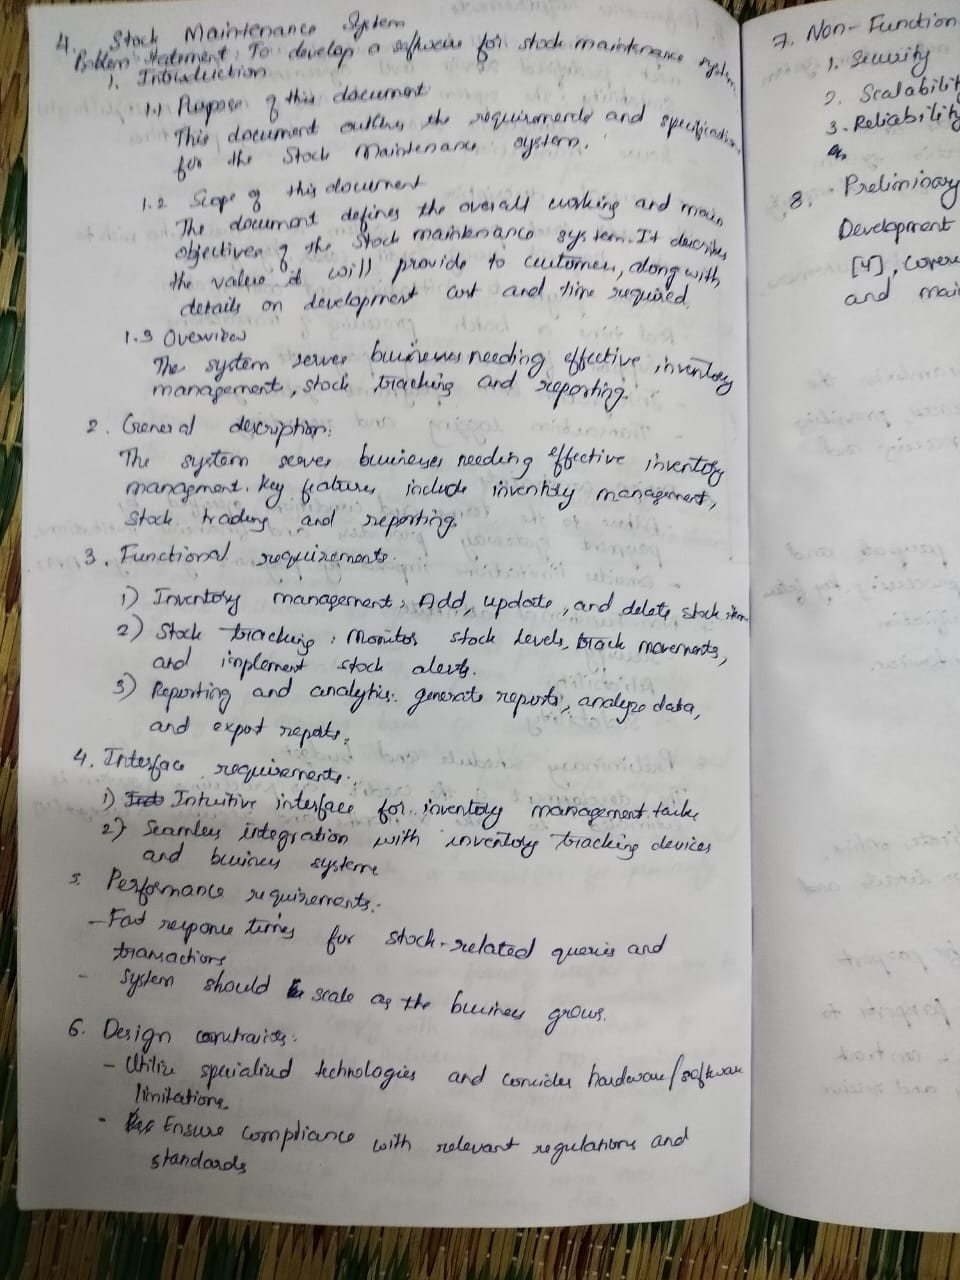 4. Stock Maintenance System
Problem statement: To develop a software for stock maintenance system
1. Introduction
1.1 Purpose of this document
This document outlines the requirements and specifications
for the Stock Maintenance system.
1.2 Scope of this document
The document defines the overall working and main
objectives of the Stock maintenance system. It describes
the value it will provide to customers, along with
details on development cost and time required.
1.3 Overview
The system serves businesses needing effective inventory
management, stock tracking and reporting.
2. General description:
The system serves businesses needing effective inventory
managment. Key features include inventory management,
stock trading and reporting.
3. Functional requirements.
1) Inventory management: Add, update, and delete stock item
2) Stock tracking: Monitor stock levels, track movements,
and implement stock alerts.
3) Reporting and analytics: generate reports, analyze data,
and export reports.
4. Interface requirements:
1) Intuitive interface for inventory management tasks
2) Seamless integration with inventory tracking devices
and business systems
5. Performance requirements:
- Fast response times for stock-related queries and
transactions
- System should scale as the business grows.
6. Design constraints:
- Utilize specialized technologies and consider hardware/software
limitations.
- Ensure compliance with relevant regulations and
standards
7. Non-Function
1. Security
2. Scalabilit
3. Reliability
8. Preliminary
Development
[4], cover
and mai